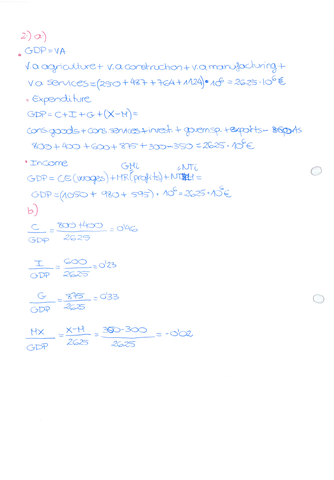 2) a)
* GDP = VA
v.a agriculture + v.a construction + v.a manufacturing +
v.a services = (250 + 487 + 764 + 1124) · 10⁶ = 2625 · 10⁶ €
· Expenditure
GDP = C + I + G + (X-M) =
cons. goods + cons services + invest + govern sp. + exports -
800 + 400 + 600 + 875 + 300 - 350 = 2625 · 10⁶ €
· Income
GMi = NTi
GDP = CE (wages) + MR (profits) + =
GDP = (1050 + 980 + 595) · 10⁶ = 2625 · 10⁶ €
b)
C/GDP = 800+400/2625 = 0'46
I/GDP = 600/2625 = 0'23
G/GDP = 875/2625 = 0'33
MX/GDP = X-M/2625 = -300/2625 = -0'02